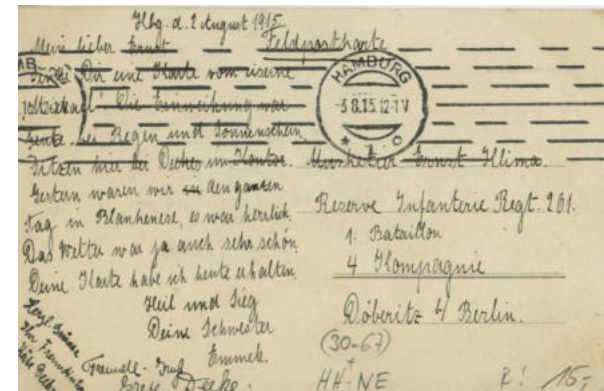 Hbg. d. 2 August 1915.
Mein lieber Ernst
Feldpostkarte
Dir eine Karte vom eiserne
Die Einweihung war
heute bei Regen und Sonnenschein.
Sitzen hier bei Deekes im Kontor.
Gestern waren wir den ganzen
Tag in Blankenese, es war herrlich.
Das Wetter war ja auch sehr schön
Deine Karte habe ich heute erhalten.
Heil und Sieg
Deine Schwester
Emmek.
Herzl. Grüsse
Freundl. Gruß
Grete Deeke.
HAMBURG
3 8.15. 12-1 V
* 1. o
Musketier Ernst Klima.
Reserve Infanterie Regt. 201.
1. Bataillon
4 Kompagnie
Döberitz b/ Berlin.
(30-67)
HH-NE
15,-